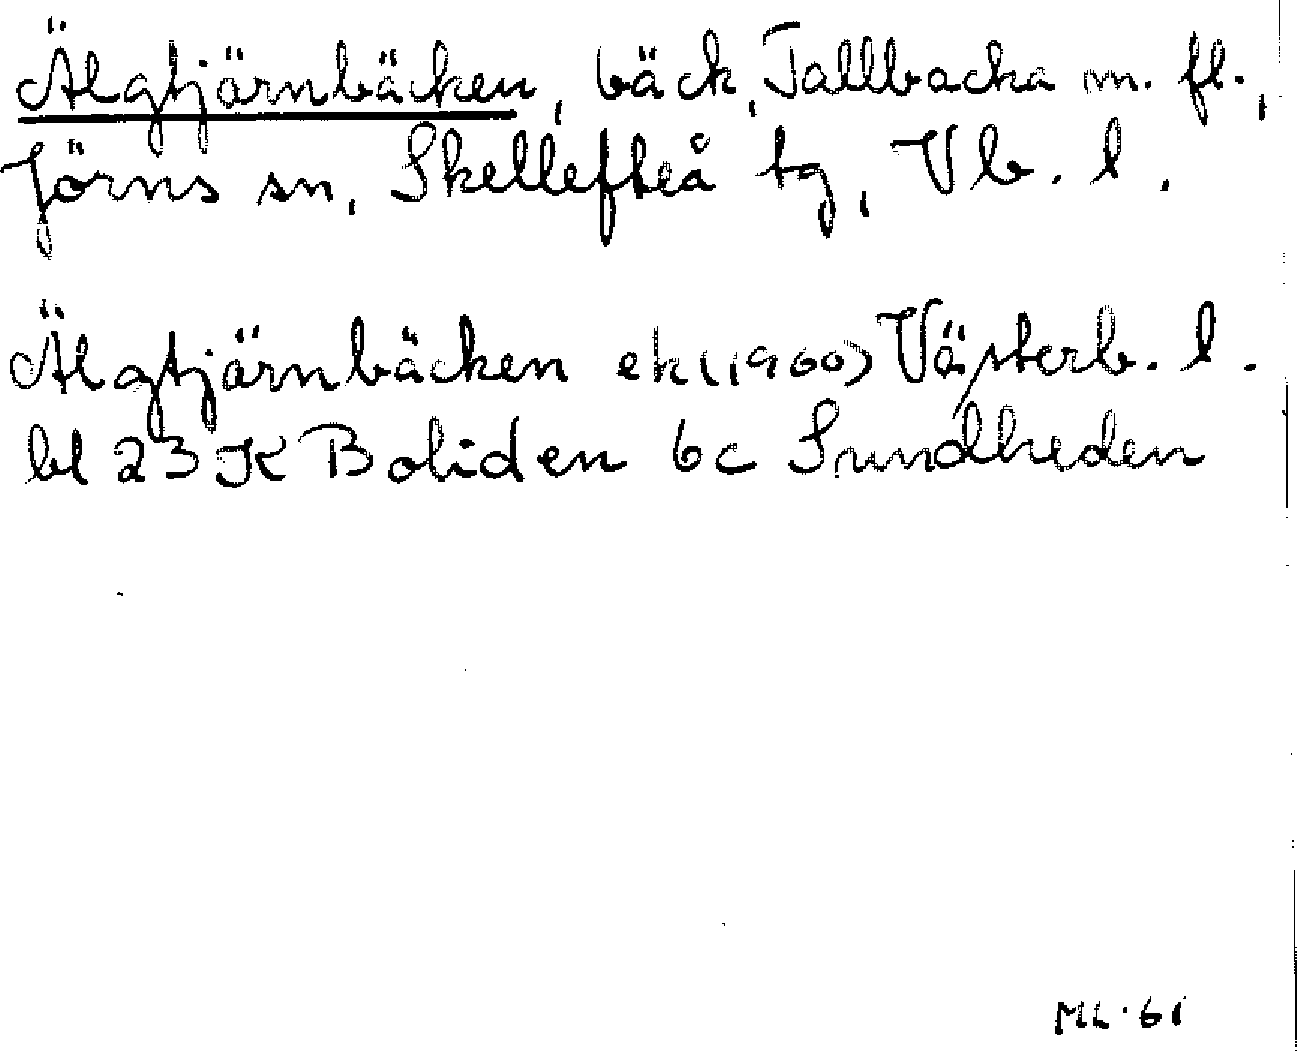 Älgtjärnbäcken, bäck, Tallbacka m. fl.,
Jörns sn, Skellefteå tg, Vb. l.
Älgtjärnbäcken ek (1960) Västerb. l.
bl 23 K Boliden 6c Sundheden
ML. 61